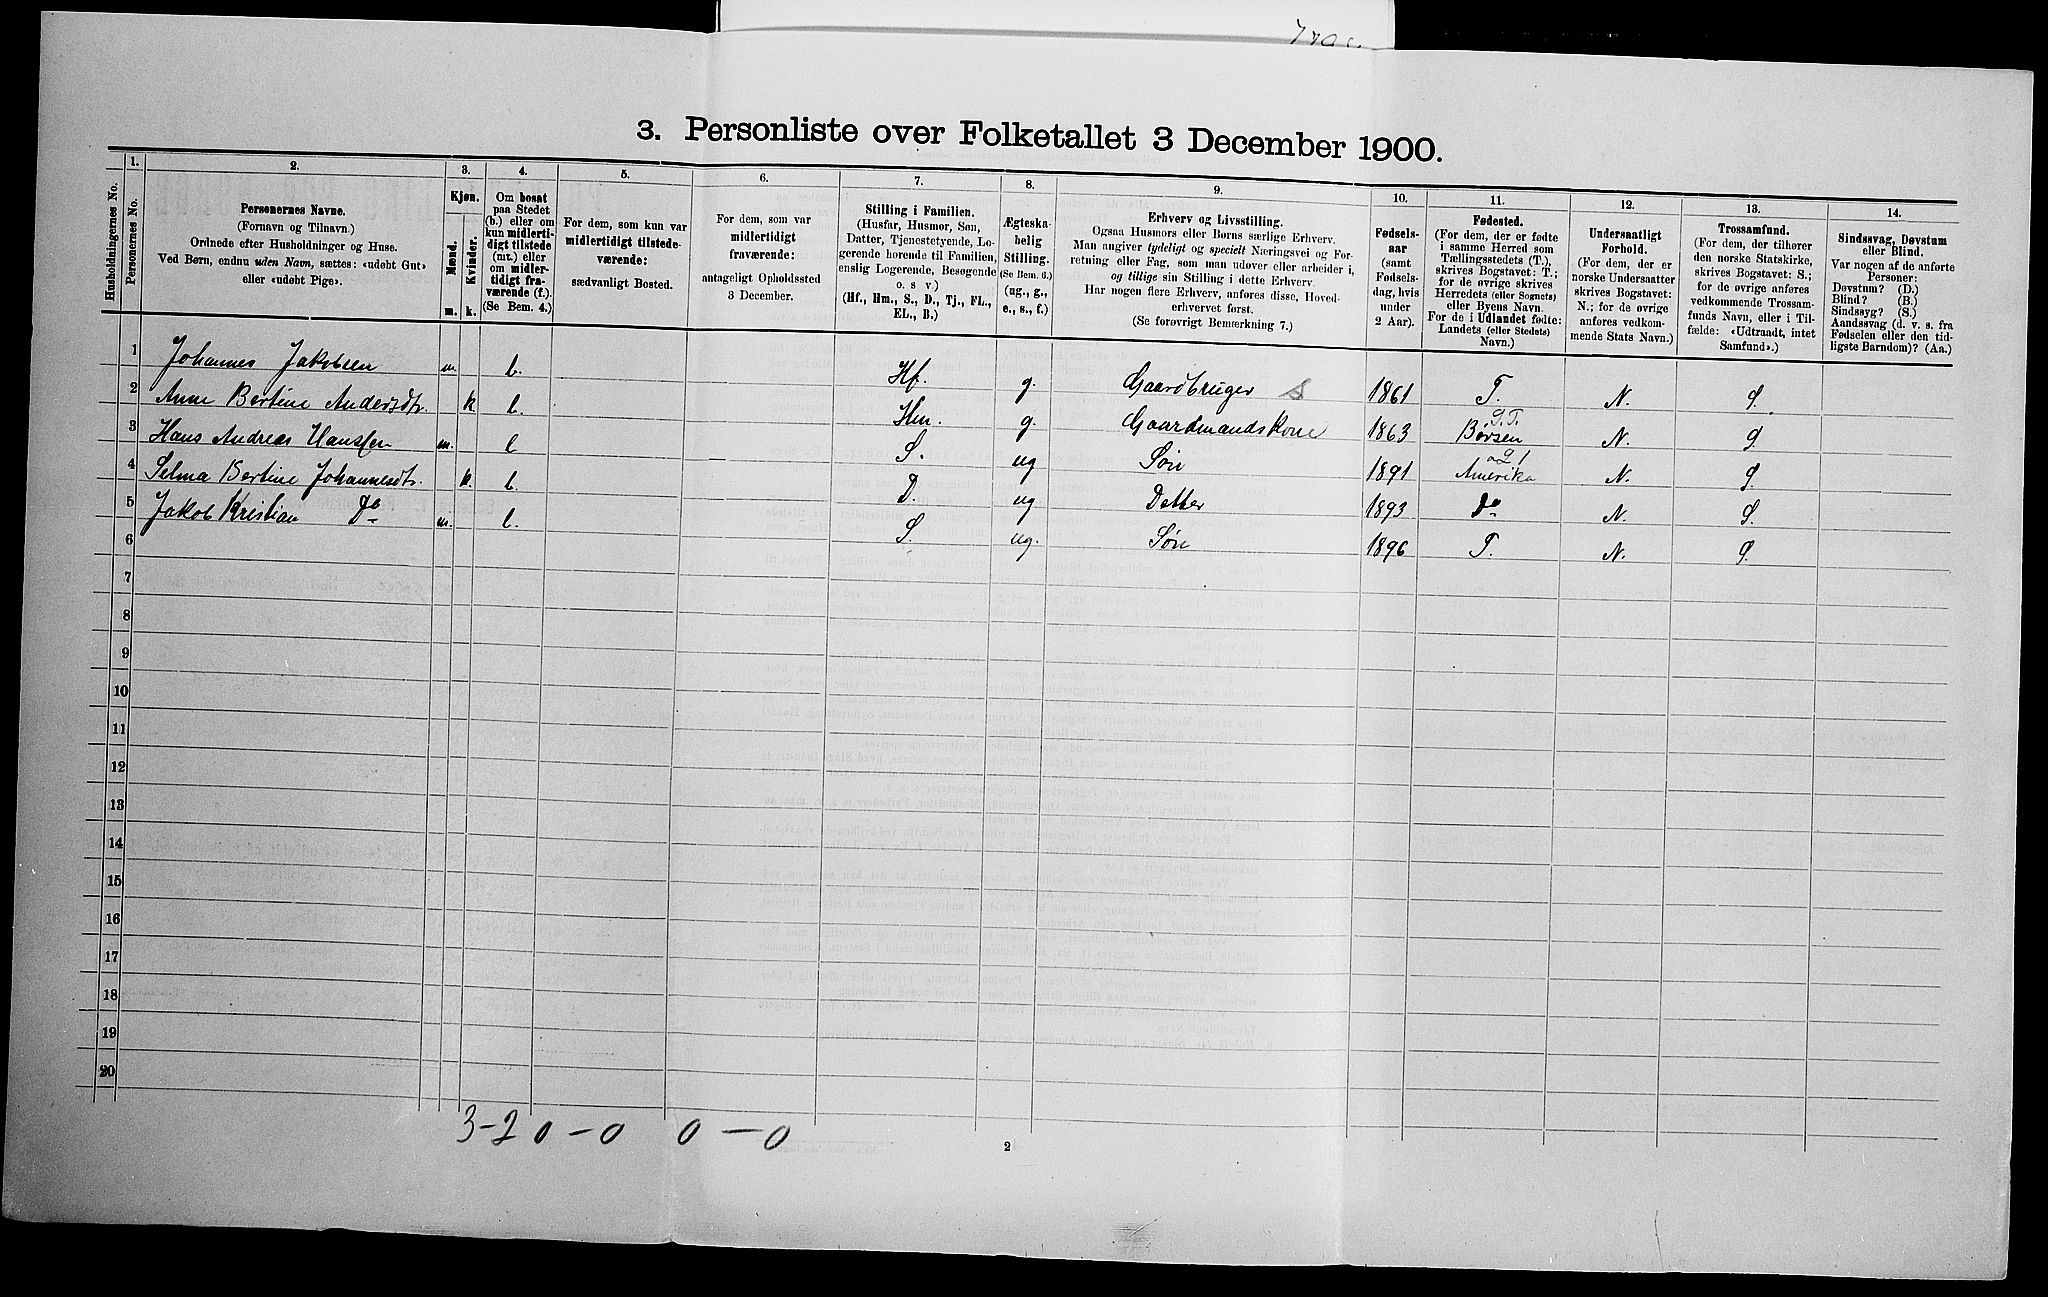 3. Personliste over Folketallet 3 December 1900.
Husholdningernes No.
1. Personernes No.
2. Personernes Navne. (Fornavn og Tilnavn.) Ordnede efter Husholdninger og Huse. Ved Børn, endnu uden Navn, sættes: «udøbt Gut» eller «udøbt Pige».
3. Kjøn. Mænd. m. Kvinder. k.
4. Om bosat paa Stedet (b.) eller om kun midlertidigt tilstede (mt.) eller om midlertidigt fraværende (f.) (Se Bem. 4.)
5. For dem, som kun var midlertidigt tilstedeværende: sædvanligt Bosted.
6. For dem, som var midlertidigt fraværende: antageligt Opholdssted 3 December.
7. Stilling i Familien. (Husfar, Husmor, Søn, Datter, Tjenestetyende, Logerende hørende til Familien, enslig Logerende, Besøgende o. s v.) (Hf., Hm., S., D., Tj., FL., EL., B.)
8. Ægteskabelig Stilling. (Se Bem. 6.) (ug., g., e., s., f.)
9. Erhverv og Livsstilling. Ogsaa Husmors eller Børns særlige Erhverv. Man angiver tydeligt og specielt Næringsvei og Forretning eller Fag, som man udøver eller arbeider i, og tillige sin Stilling i dette Erhverv. Har nogen flere Erhverv, anføres disse, Hovederhvervet først. (Se forøvrigt Bemærkning 7.)
10. Fødselsaar (samt Fødselsdag, hvis under 2 Aar).
11. Fødested. (For dem, der er fødte i samme Herred som Tællingsstedets (T.), skrives Bogstavet: T.; for de øvrige skrives Herredets (eller Sognets) eller Byens Navn. For de i Udlandet fødte: Landets (eller Stedets) Navn.)
12. Undersaatligt Forhold. (For dem, der er norske Undersaatter skrives Bogstavet: N.; for de øvrige anføres vedkommende Stats Navn.)
13. Trossamfund. (For dem, der tilhører den norske Statskirke, skrives Bogstavet: S.; for de øvrige anføres vedkommende Trossamfunds Navn, eller i Tilfælde: «Udtraadt, intet Samfund».)
14. Sindssvag, Døvstum eller Blind. Var nogen af de anførte Personer: Døvstum? (D.) Blind? (B.) Sindssyg? (S.) Aandssvag (d. v. s. fra Fødselen eller den tidligste Barndom)? (Aa.)
1 Johannes Jakobsen m. b. Hf. g. Gaardbruger S 1861 T. N. S.
2 Anne Bertine Andersdtr. k. b. Hm. g. Gaardmandskone 1863 Børsen S.T. N. S.
3 Hans Andreas Hanssen m. b S. ug Søn 1891 Amerika N. S.
4 Selma Bertine Johannesdtr. k. b. D. ug Datter 1893 Do N. S.
5 Jakob Kristian Do m. b. S. ug. Søn 1896 T. N. S.
6
7
8
9
10
11
12
13
14
15
16
17
18
19
20
3-2 0-0 0-0
2